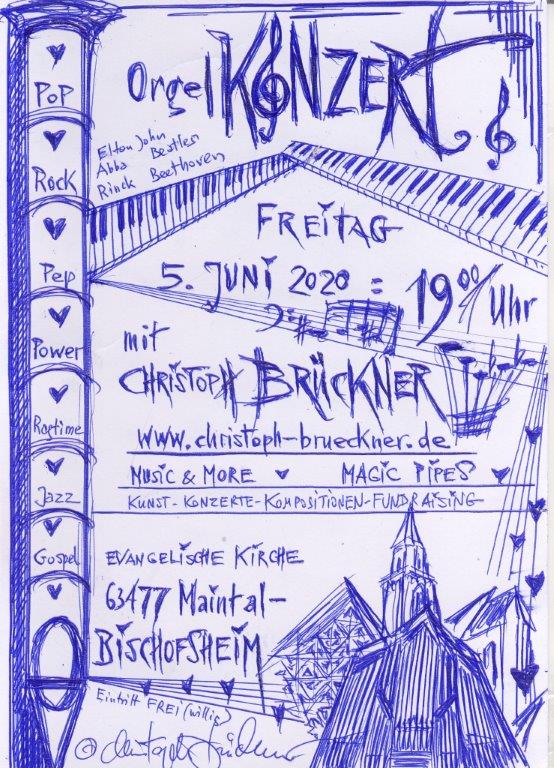 Orgel KONZERT
Elton John
Abba Beatles
Rinck Beethoven
FREITAG
5. JUNI 2020 : 19⁰⁰/Uhr
mit
CHRISTOPH BRÜCKNER
www.christoph-brueckner.de
MUSIC & MORE MAGIC PIPES
KUNST-KONZERTE-KOMPOSITIONEN-FUNDRAISING
EVANGELISCHE KIRCHE
63477 Maintal-
BISCHOFSHEIM
Eintritt FREI (willig)
© Christoph Brückner
POP
ROCK
Pep
Power
Ragtime
Jazz
Gospel